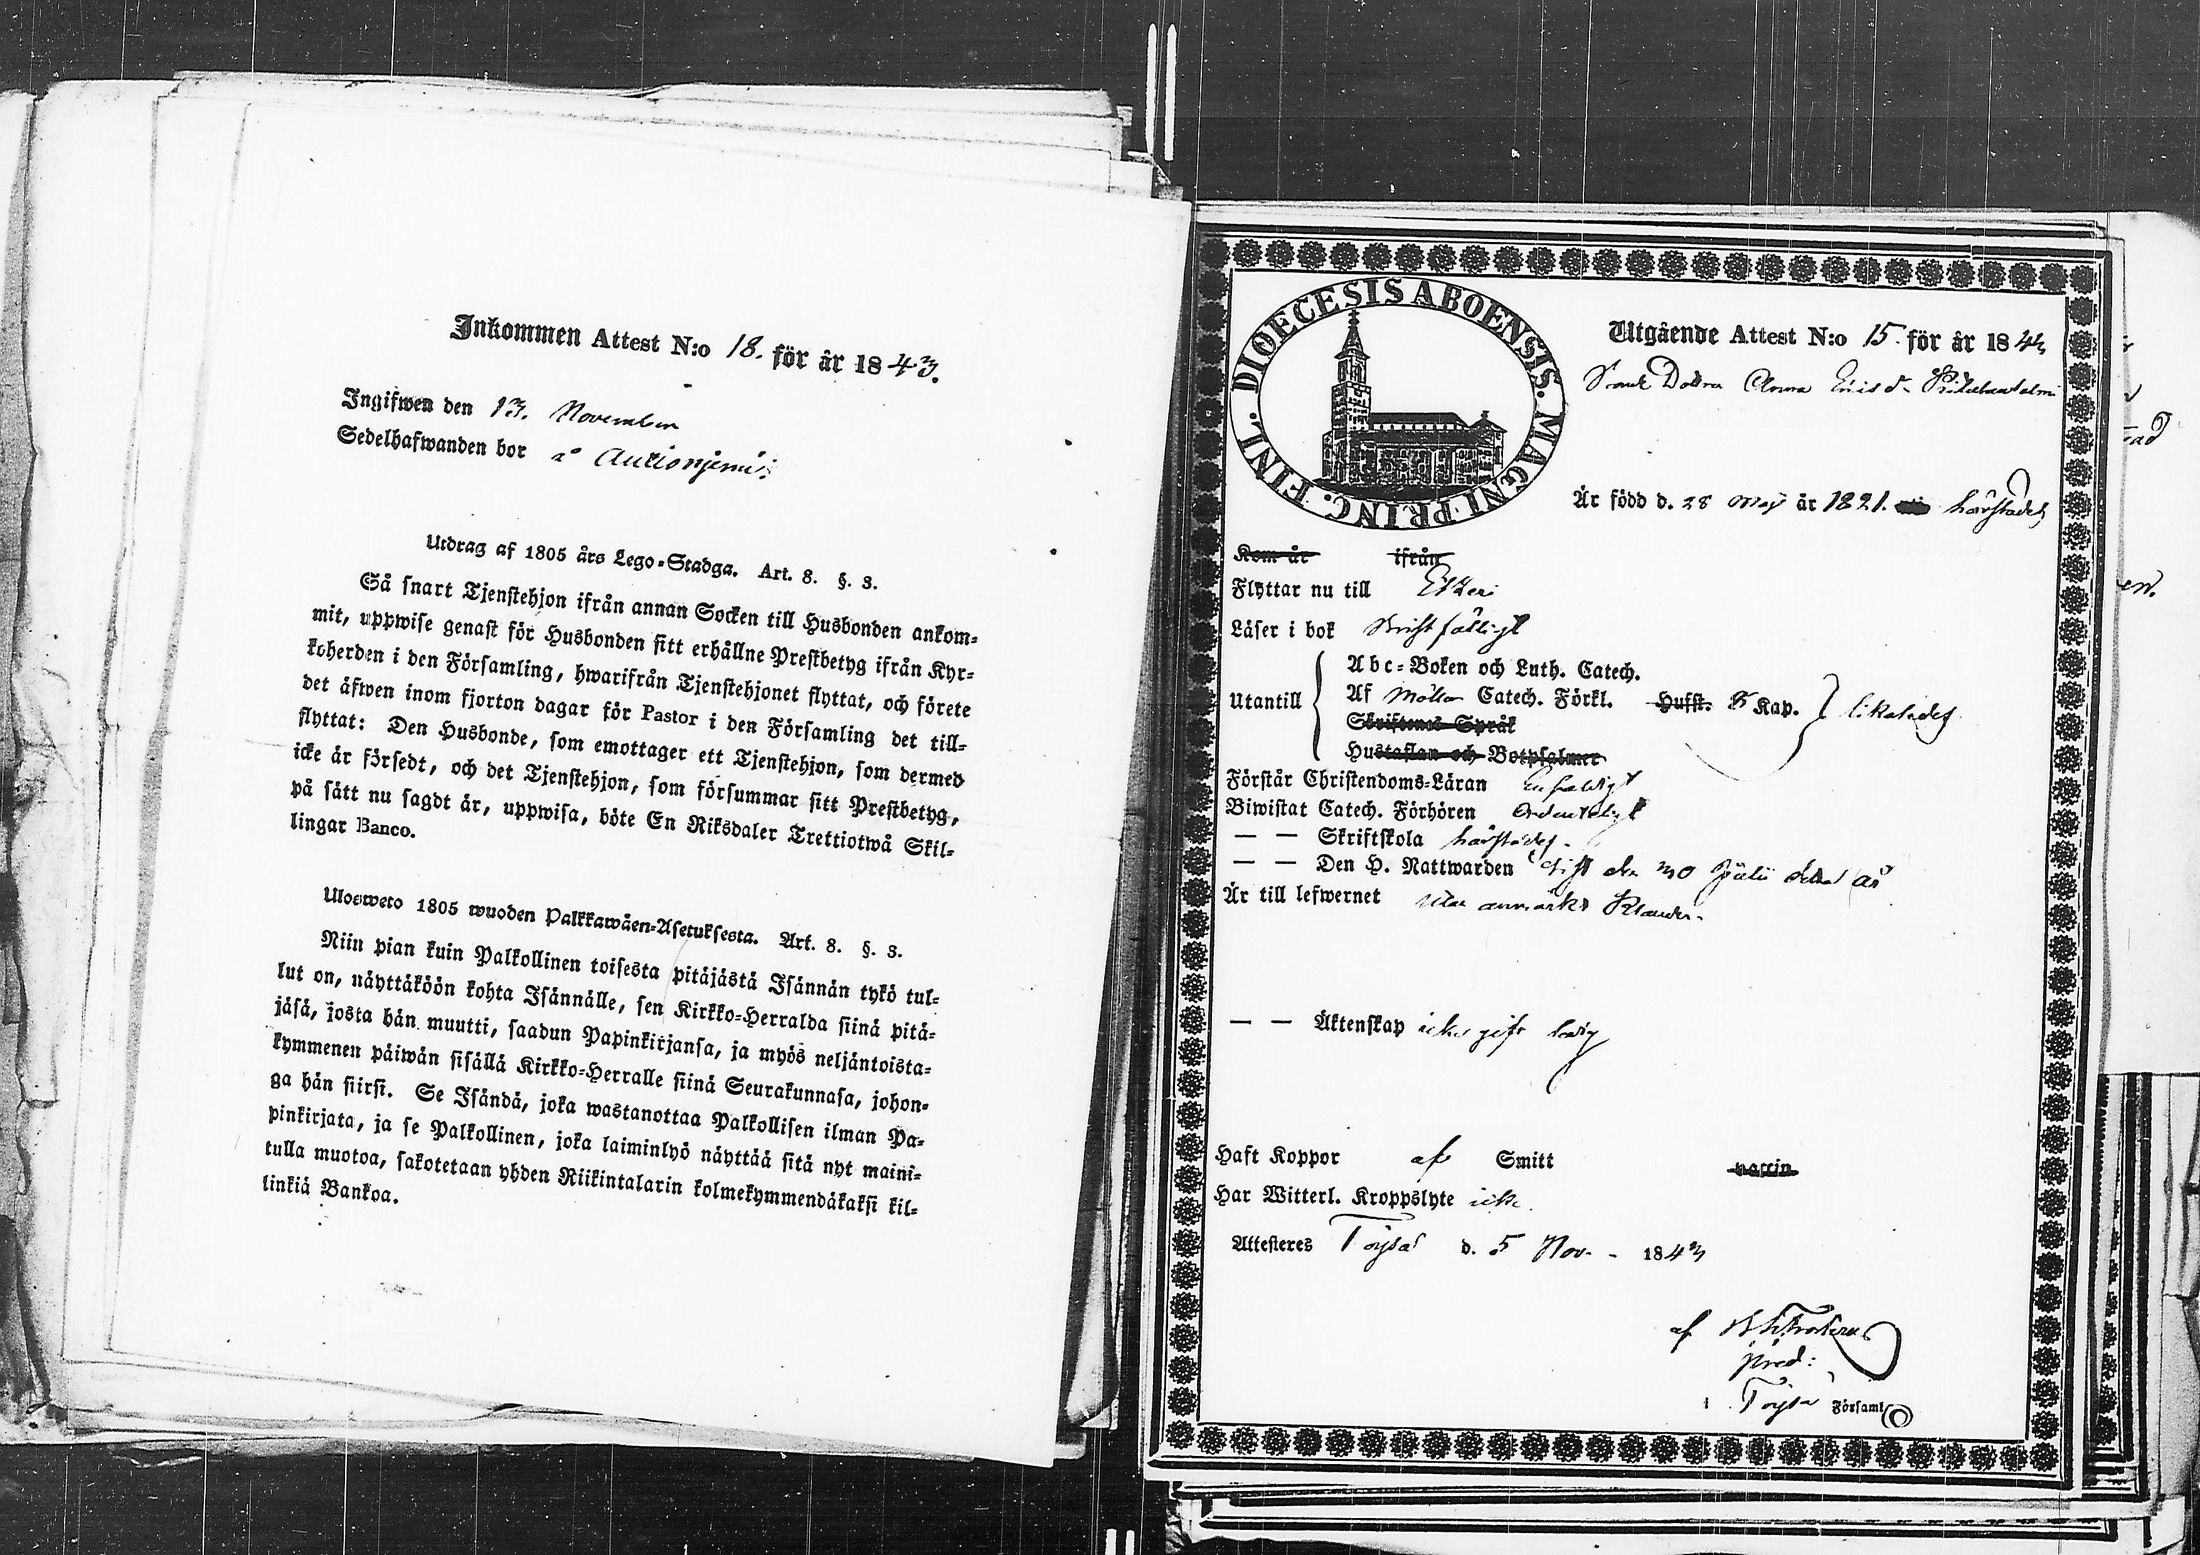 Inkommen Attest N:o 18. för år 1843.
Ingifwen den 13. November
Sedelhafwanden bor å
Utdrag af 1805 års Lego-Stadga. Art. 8. §. 3.
Så snart Tjenstehjon ifrån annan Socken till Husbonden ankom-
mit, uppwise genast för Husbonden sitt erhållne Prestbetyg ifrån Kyr-
koherden i den Församling, hwarifrån Tjenstehjonet flyttat, och förete
det äfwen inom fjorton dagar för Pastor i den Församling det till-
flyttat: Den Husbonde, som emottager ett Tjenstehjon, som dermed
icke är försedt, och det Tjenstehjon, som försummar sitt Prestbetyg,
på sätt nu sagdt är, uppwisa, böte En Riksdaler Trettiotwå Skil-
lingar Banco.
Ulosweto 1805 wuoden Palkkawäen-Asetuksesta. Art. 8. §. 3.
Niin pian kuin Palkollinen toisesta pitäjästä Isännän tykö tul-
lut on, näyttäköön kohta Isännälle, sen Kirkko-Herralda siinä pitä-
jäsä, josta hän muutti, saadun Papinkirjansa, ja myös neljäntoista-
kymmenen päiwän sisällä Kirkko-Herralle siinä Seurakunnasa, johon-
ga hän siirsi. Se Isändä, joka wastanottaa Palkollisen ilman Pa-
pinkirjata, ja se Palkollinen, joka laiminlyö näyttää sitä nyt maini-
tulla muotoa, sakotetaan yhden Riikintalarin kolmekymmendäkaksi kil-
linkiä Bankoa.
DIOECESIS ABOENSIS. MAGNI PRINC. FINL.
Utgående Attest N:o 15. för år 1843
Dottren Anna
Är född d. 28 Maj år 1821. härstädes
Kom år ifrån
Flyttar nu till Etzeri
Läser i bok
Utantill
Abc-Boken och Luth. Catech.
Af Möllers Catech. Förkl. Hufst. 5 Kap. likaledes
Skriftenes Språk
Hustaflan och Botpsalmer
Förstår Christendoms-Läran Enfaldigt
Biwistat Catech. Förhören Ordenteligt
— — Skriftskola härstädes.
— — Den H. Nattwarden sist den 30 Julii detta år
Är till lefwernet utan anmärkt Klander.
— — Äktenskap icke gift ledig
Haft Koppor af Smitt vaccin
Har Witterl. Kroppslyte icke.
Attesteres Töysä d. 5 Nov. 1843
af
pred:
i Töysä Församl